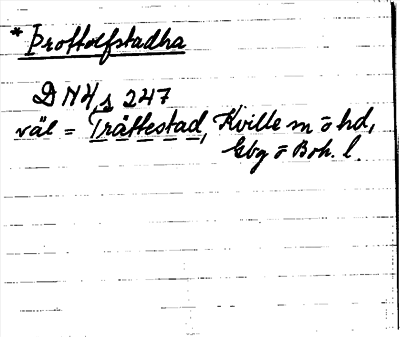 * Þrottolfstadha
DN 4, s 247
väl = Trättestad, Kville m ö hd,
Gbg ö Boh. l.